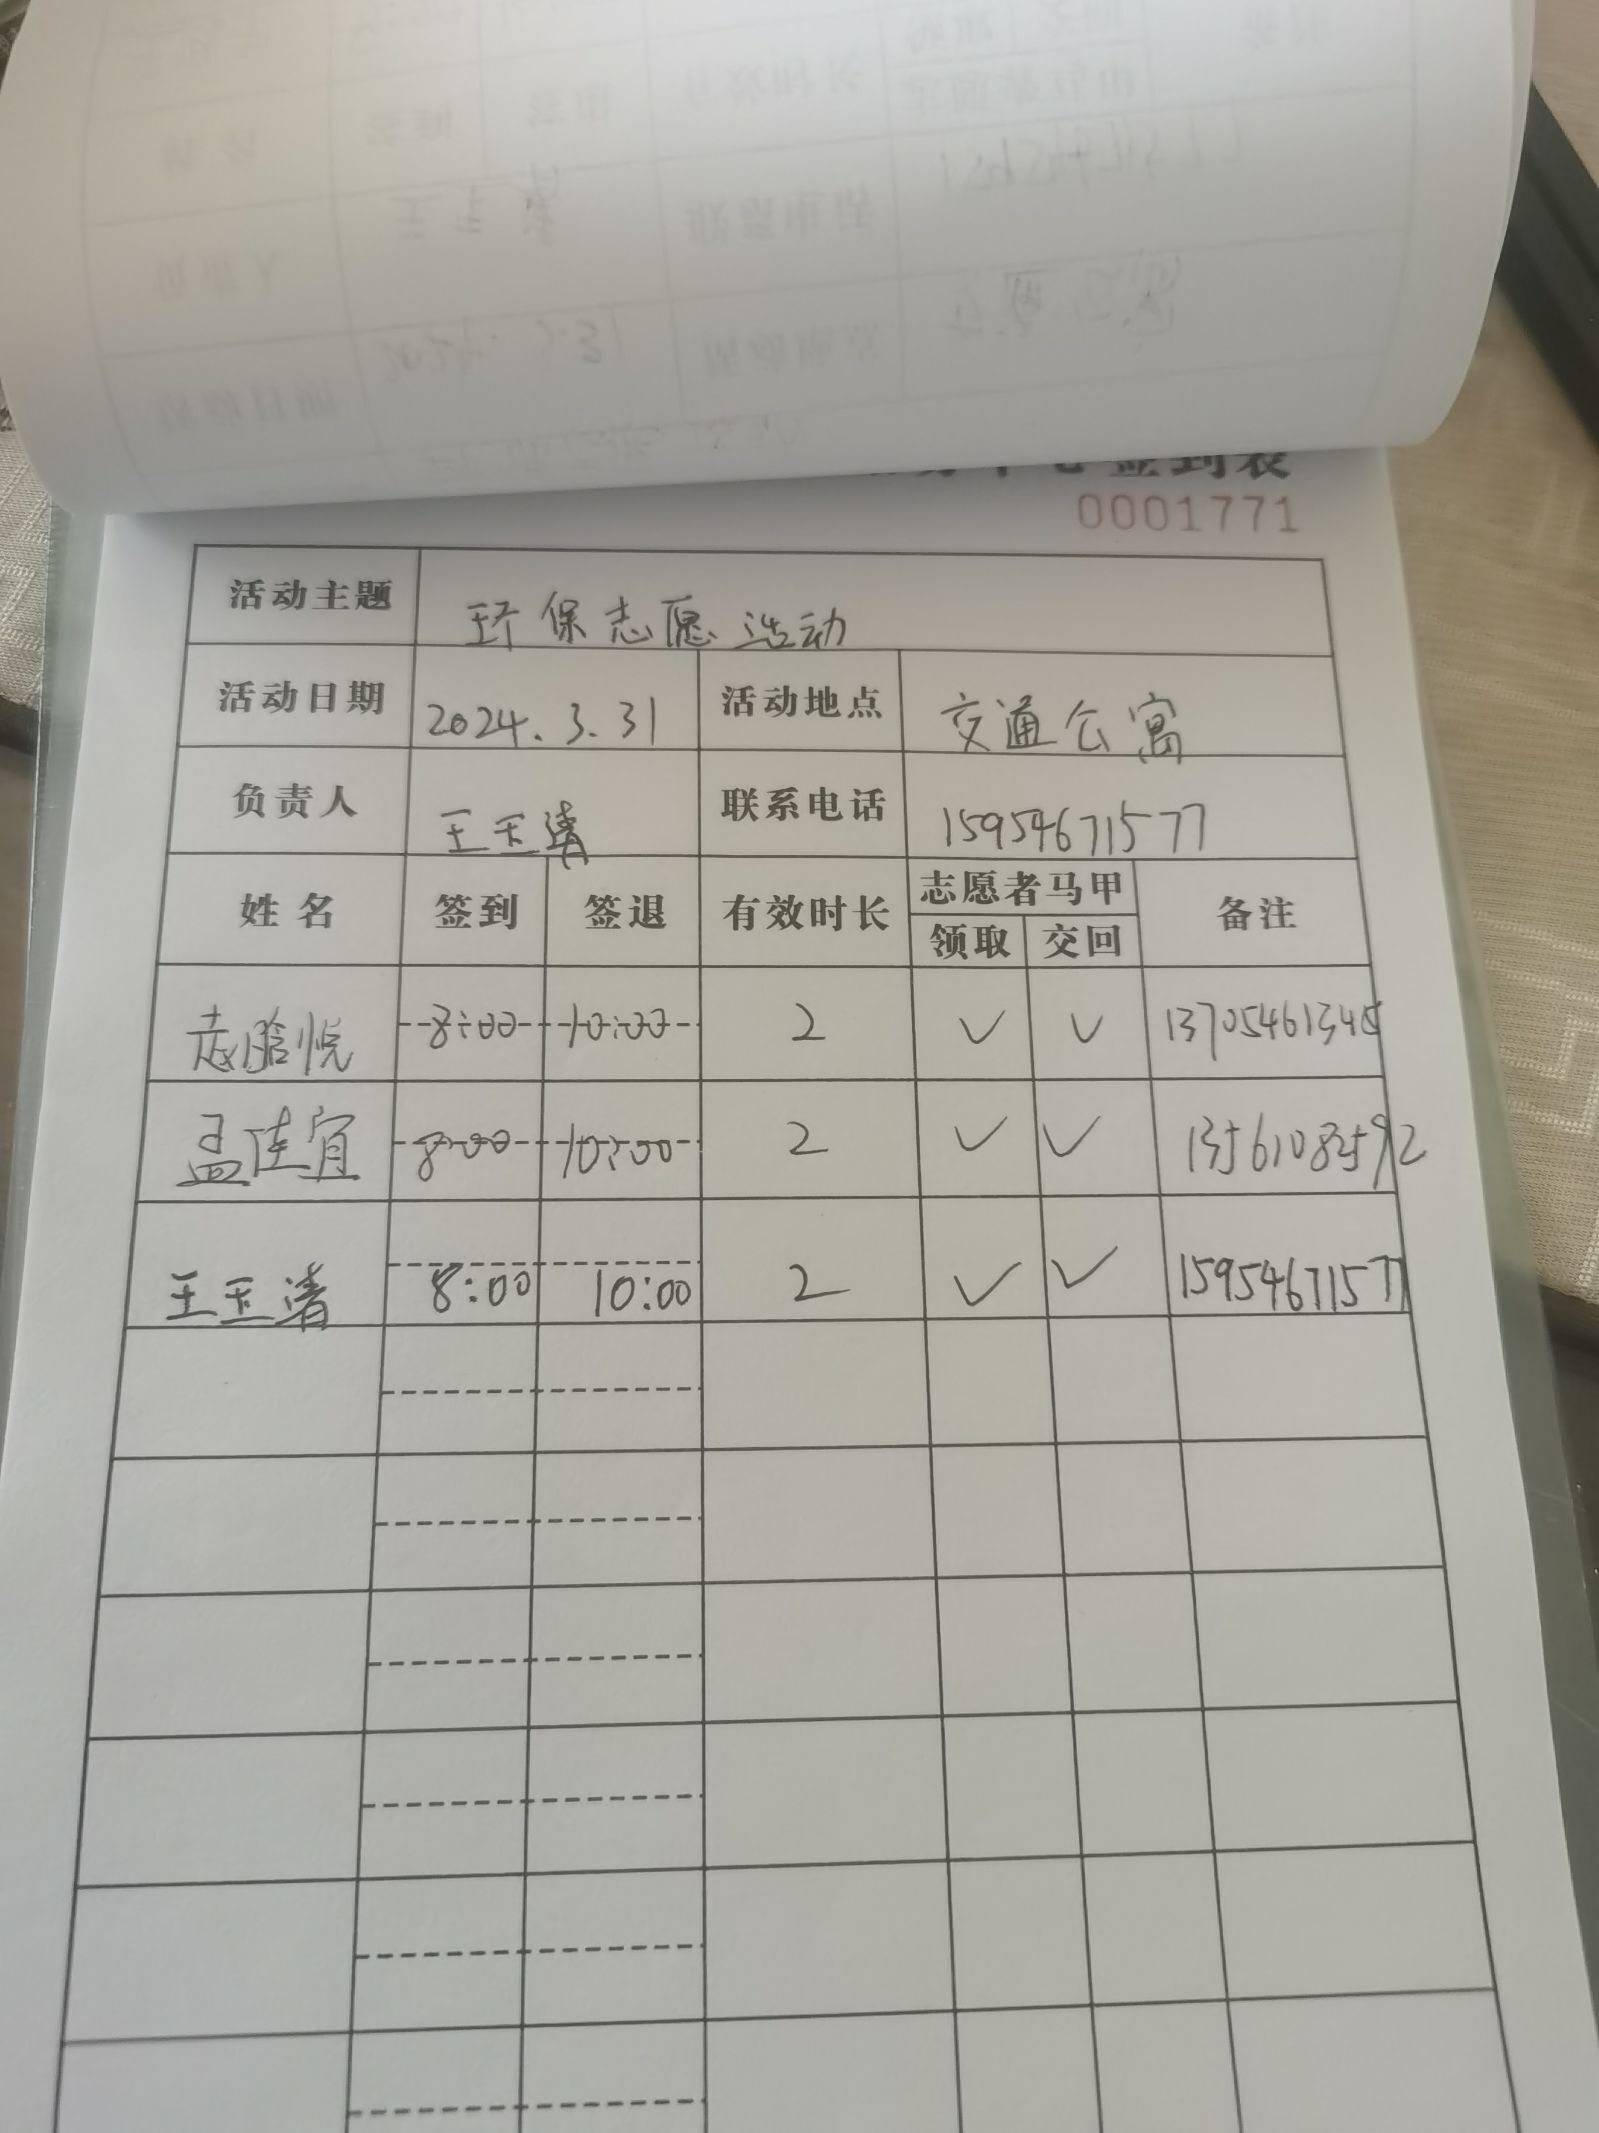 签到表
0001771
活动主题 环保志愿活动
活动日期 2024.3.31 活动地点 交通公寓
负责人 王玉清 联系电话 15954671577
姓名 签到 签退 有效时长 志愿者马甲 备注
领取 交回
赵晗悦 8:00 10:00 2 ✓ ✓ 13705461345
孟佳宜 8:00 10:00 2 ✓ ✓ 13561083592
王玉清 8:00 10:00 2 ✓ ✓ 15954671577